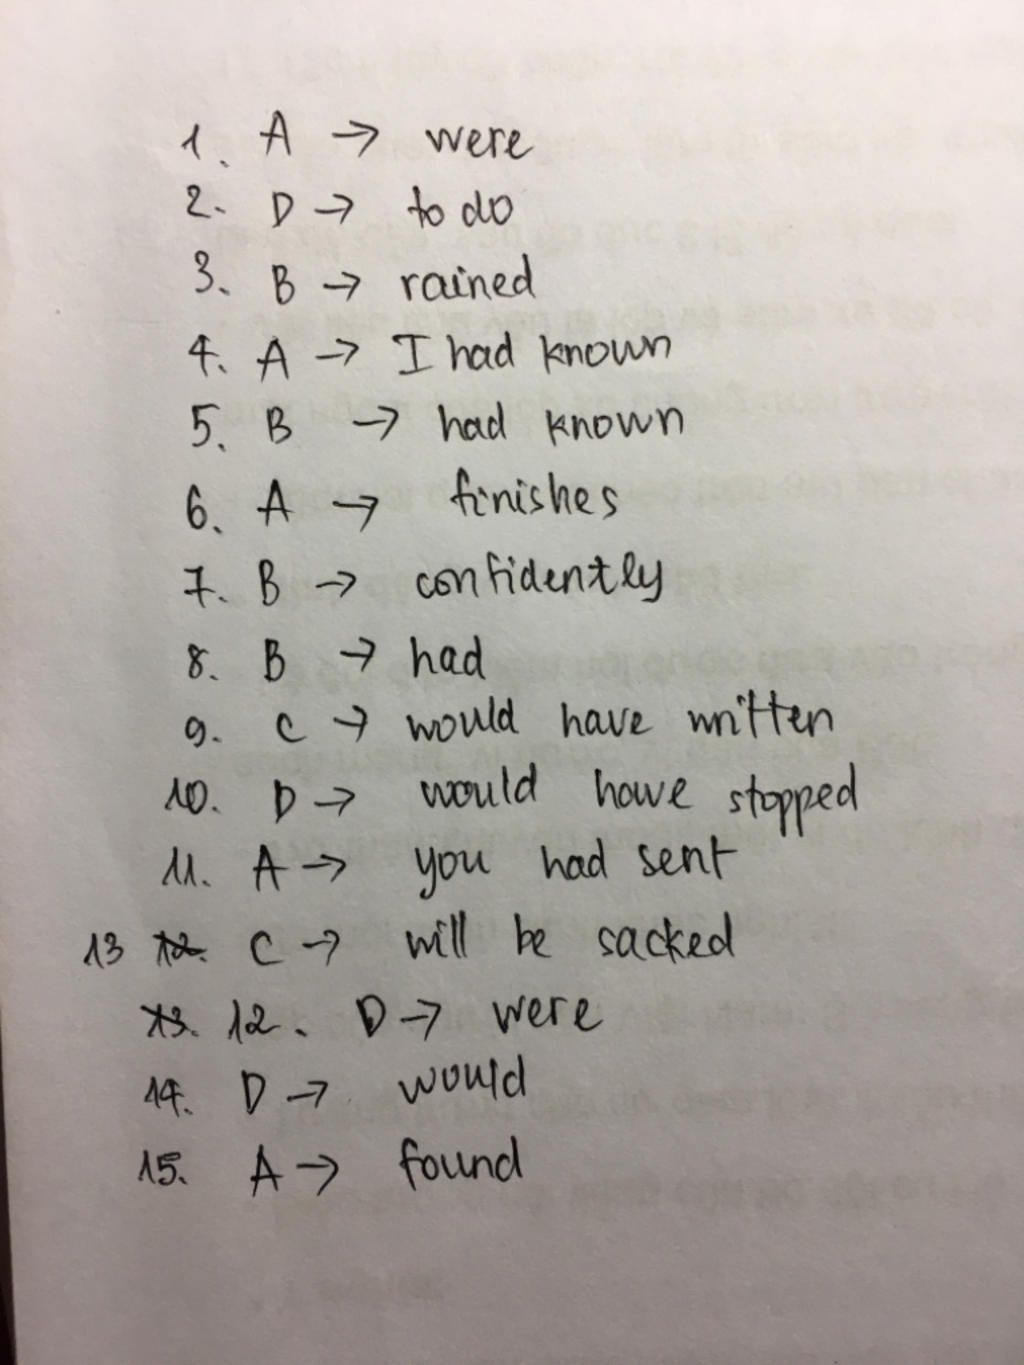 1. A → were
2. D → to do
3. B → rained
4. A → I had known
5. B → had known
6. A → finishes
7. B → confidently
8. B → had
9. C → would have written
10. D → would have stopped
11. A → you had sent
13 12. C → will be sacked
13. 12. D → were
14. D → would
15. A → found